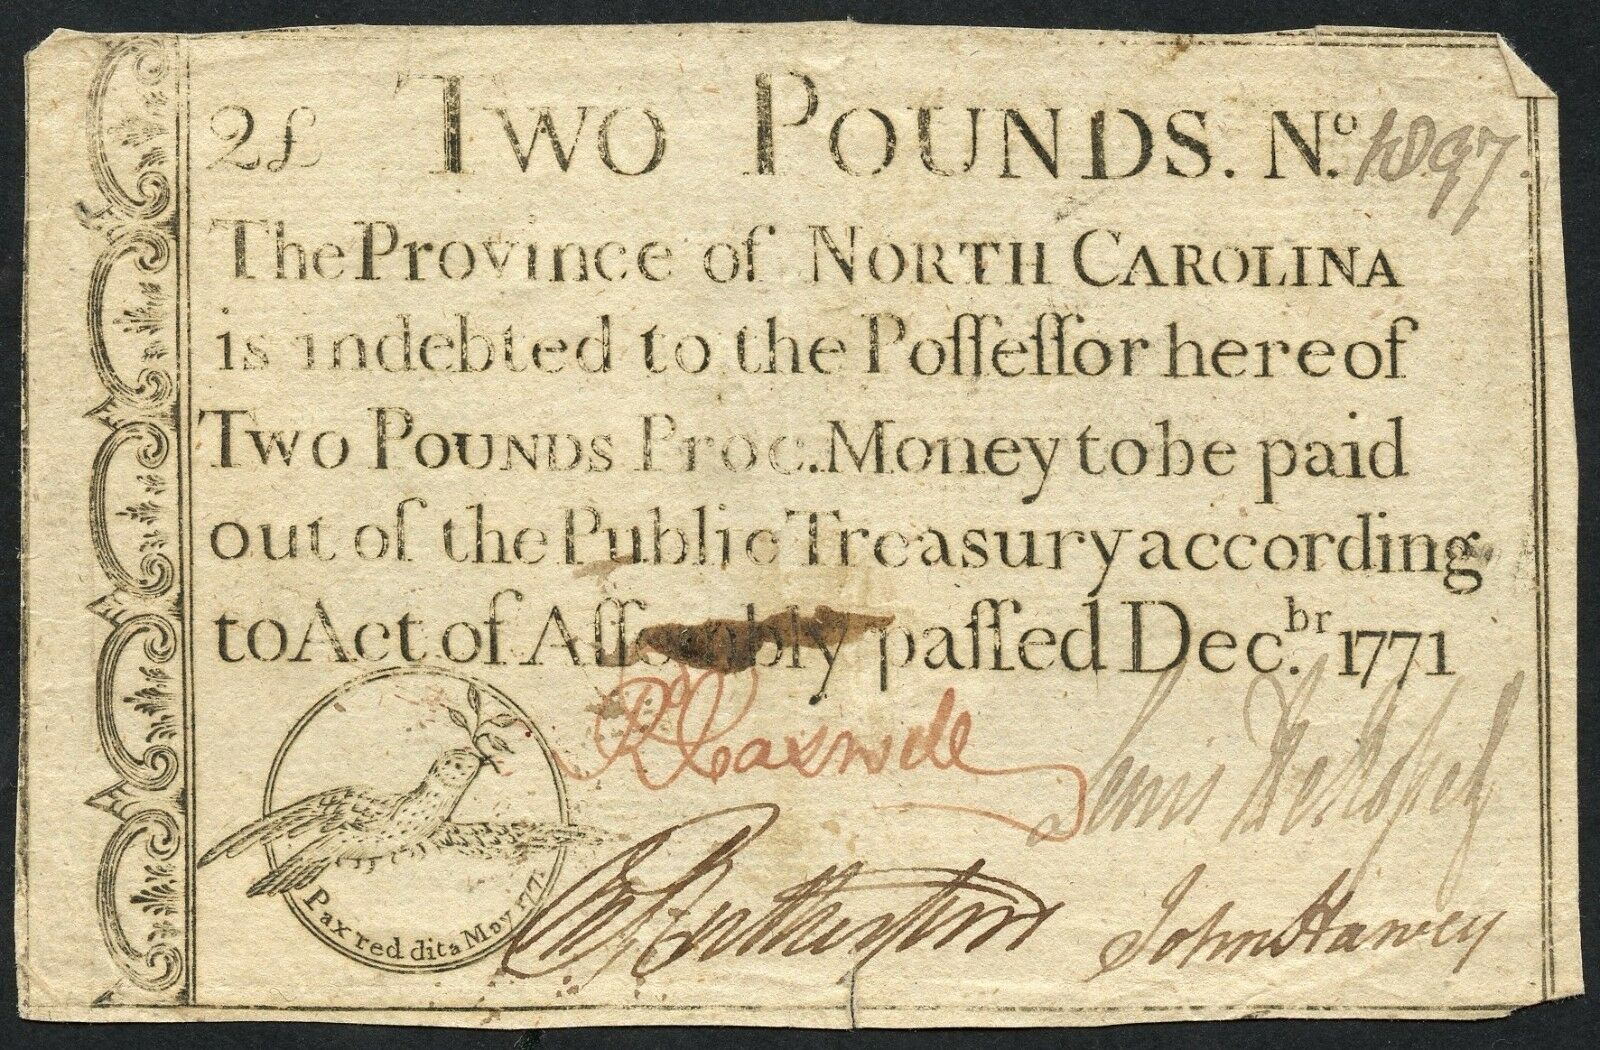 2£ Two Pounds. Nº. 1897.
The Province of North Carolina
is indebted to the Poſſeſſor hereof
Two Pounds Proc. Money to be paid
out of the Public Treasury according
to Act of Aſſembly paſſed Dec.br 1771
Rd Caswell
Lewis
Pax reddita May 1771
John Harvey